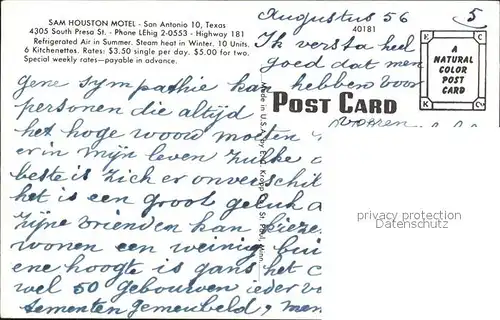 SAM HOUSTON MOTEL - San Antonio 10, Texas
4305 South Presa St. - Phone LEhig 2-0553 - Highway 181
Refrigerated Air in Summer. Steam heat in Winter. 10 Units.
6 Kitchenettes. Rates: $3.50 single per day. $5.00 for two.
Special weekly rates—payable in advance.
gene sympathie kan
personen die altijd
het hoge woord moeten
er in mijn leven zulke
beste is zich er onverschil
het is een groot geluk a
zijne vrienden kan kieze
wonen een weinig bui
ene hoogte is gans het c
wel 50 gebouwen ieder
tementen gemeubeld, men
Made in U.S.A. by E. C. Kropp Co. St. Paul, Minn.
Augustus 56
5
40181
Ik versta heel
goed dat men
hebben voor
POST CARD
voeren
A
NATURAL
COLOR
POST
CARD
K C
E K
privacy protection
Datenschutz